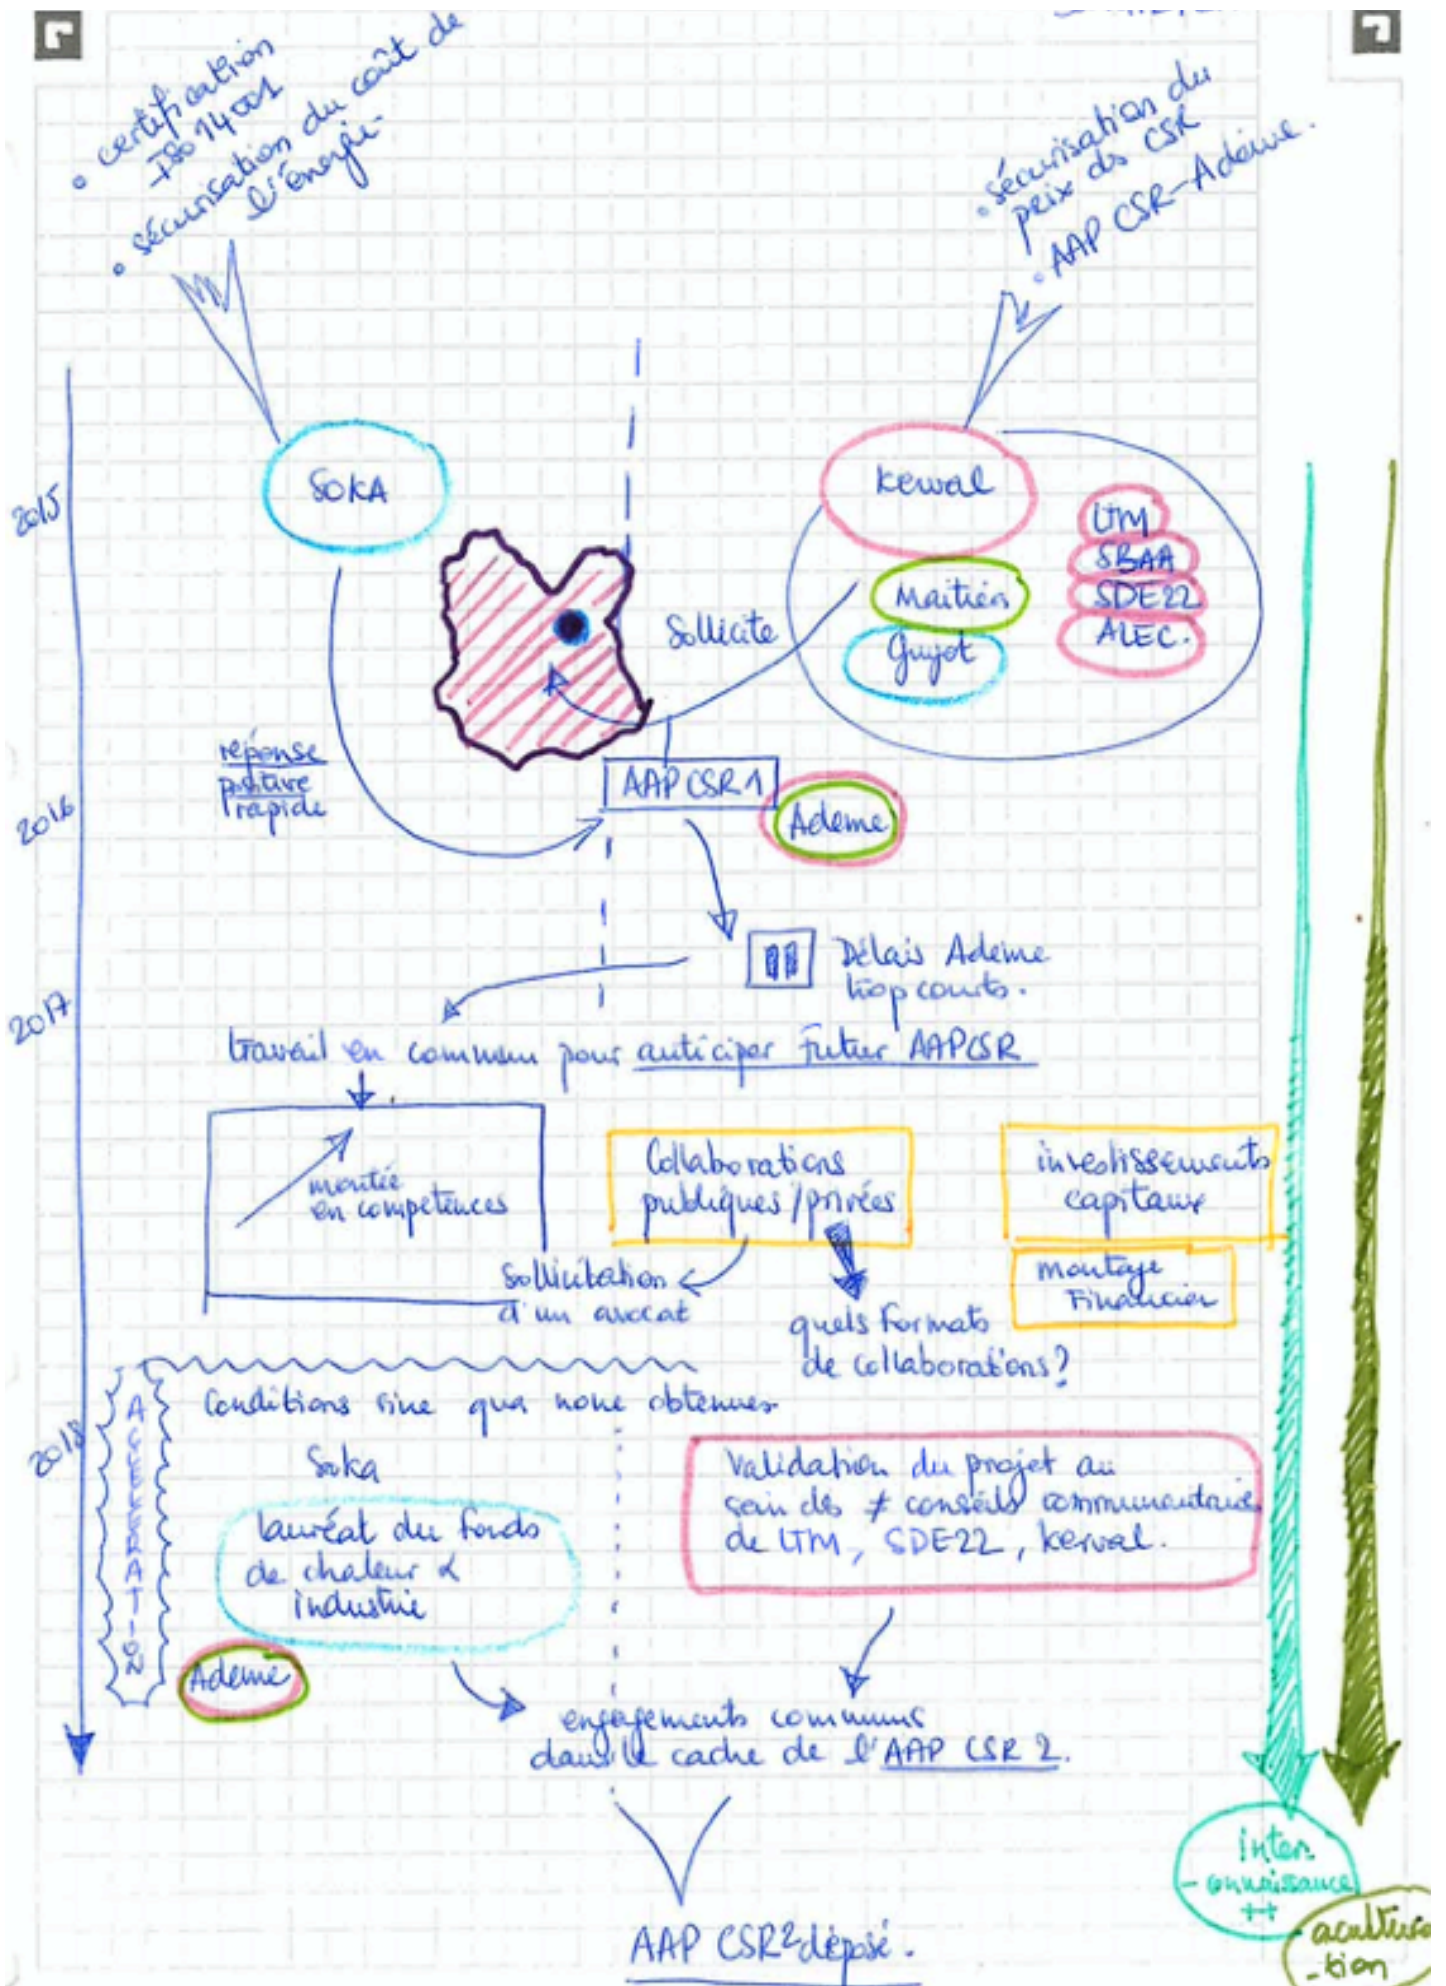 • certification
ISO 14001
• sécurisation du coût de
l'énergie
• sécurisation du
prix ds CSR
• AAP CSR-Ademe.
2015
SOKA
Kerval
LTM
SBAA
SDE22
ALEC.
Maitiers
Guyot
Sollicite
réponse
positive
rapide
AAP CSR 1
Ademe
2016
Délais Ademe
trop courts.
2017
travail en commun pour anticiper Futur AAPCSR
montée
en compétences
Collaborations
publiques/privées
investissements
capitaux
montage
Financier
Sollicitation
d'un avocat
quels Formats
de collaborations?
ACCELERATION
Conditions sine qua none obtenues
2018
Soka
lauréat du fonds
de chaleur
industrie
Validation du projet au
sein des ≠ conseils communautaires
de LTM, SDE22, Kerval.
Ademe
engagements communs
dans le cadre de l'AAP CSR 2.
inter
-onnaissance
++
AAP CSR2 déposé.
acultura
-tion